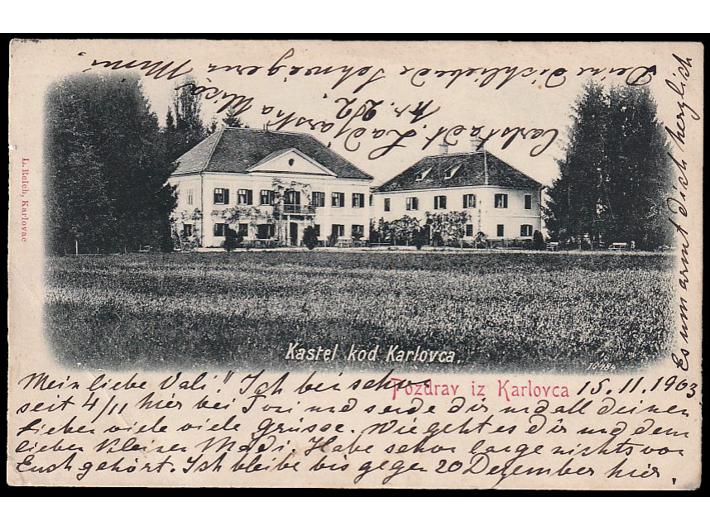 L. Reich, Karlovac
Kastel kod Karlovca.
10484
Pozdrav iz Karlovca
15.11.1903
Mein liebe Vali! Ich bei schon
seit 4/11 hier bei Toni und sende dir und all deinen
lieben viele viele grüsse. Wie geht es dir und dem
lieben kleinen Mädi. Habe schon lange nichts von
Euch gehört. Ich bleibe bis gegen 20 Dezember hier.
Es umarmt dich herzlich
Deine dichliebende Schwägerin Mimi
Carlstadt. Zadjarska ulica
Nr. 292.